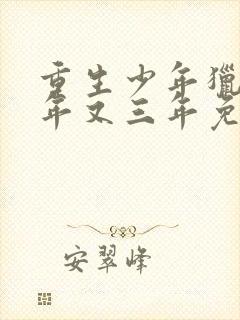 重生少年猎
年又三年免
安翠峰